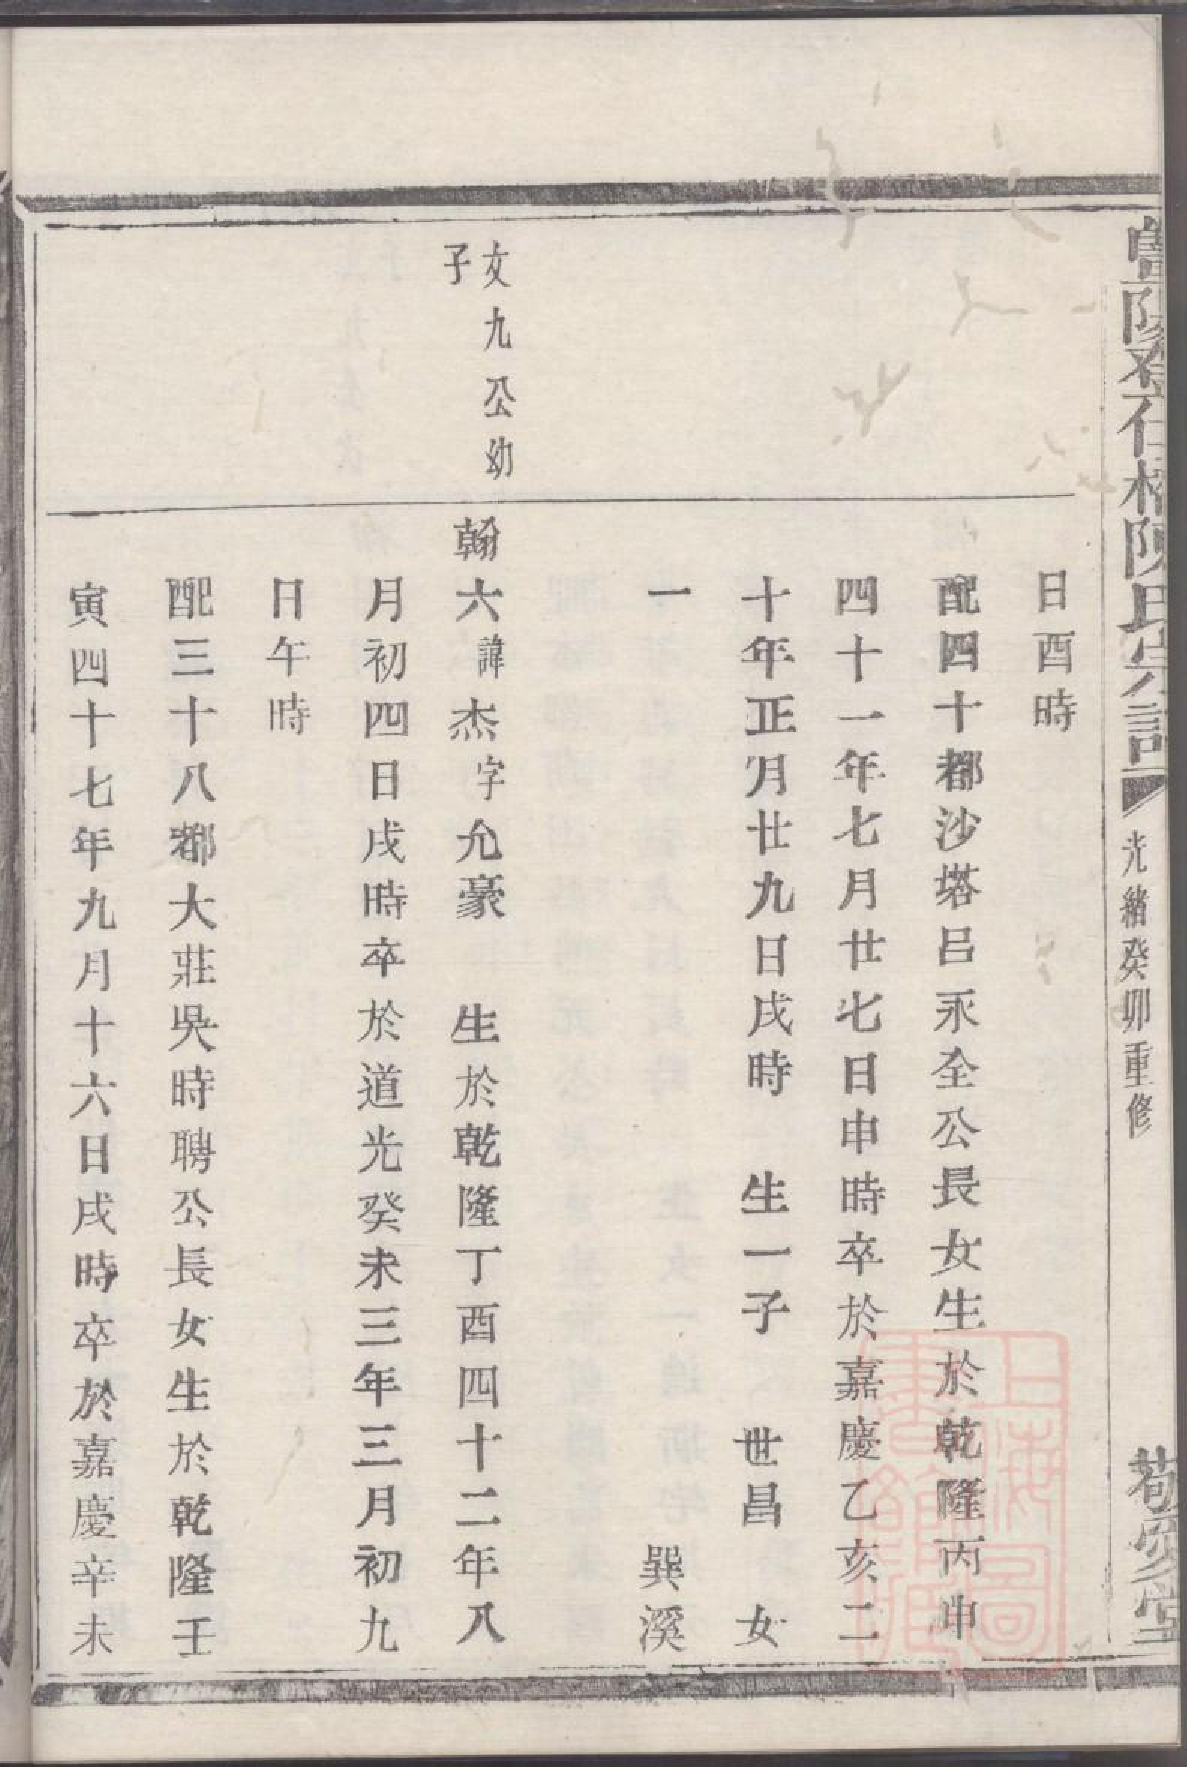 陽登仕橋陳氏宗譜 光緒癸卯重修 敬愛堂
日酉時
配四十都沙塔呂永全公長女生於乾隆丙申
四十一年七月廿七日申時卒於嘉慶乙亥二
十年正月廿九日戌時 生一子 世昌 女
一 巽溪
文九公幼
子
翰六諱杰字允豪 生於乾隆丁酉四十二年八
月初四日戌時卒於道光癸未三年三月初九
日午時
配三十八都大莊吳時聘公長女生於乾隆壬
寅四十七年九月十六日戌時卒於嘉慶辛未
上海圖書館藏